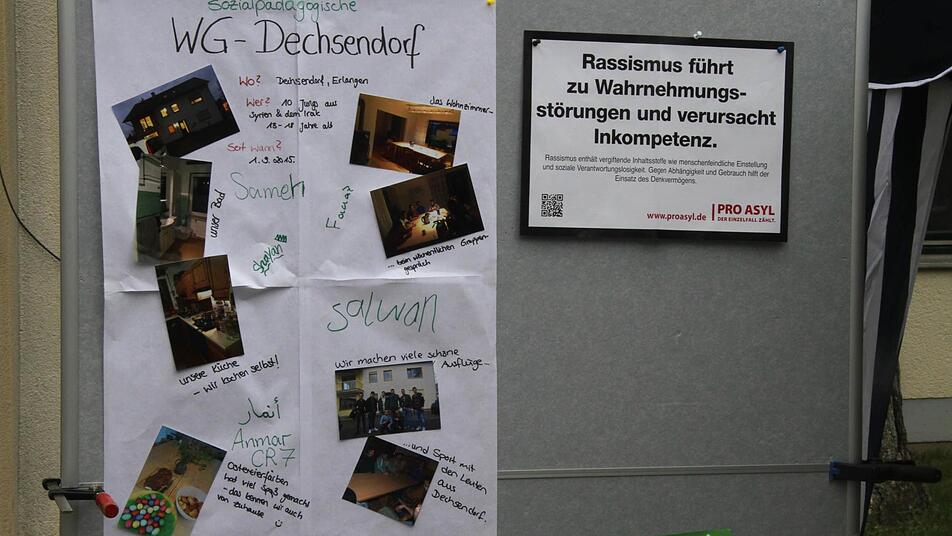 Sozialpädagogische
WG-Dechsendorf
Wo? Dechsendorf, Erlangen
Wer? 10 Jungs aus
Syrien & dem Irak
13-18 Jahre alt
Seit wann?
1.9.2015.
das Wohnzimmer
Sameh
unser Bad
... beim wöchentlichen Gruppen-
gespräch
salwan
unsere Küche
- wir kochen selbst!
Wir machen viele schöne
Ausflüge-
أنمار
Anmar
CR7
Ostereierfärben
hat viel Spaß gemacht
- das kennen wir auch
von zuhause
...und Sport mit
den Leuten
aus
Dechsendorf.
Rassismus führt
zu Wahrnehmungs-
störungen und verursacht
Inkompetenz.
Rassismus enthält vergiftende Inhaltsstoffe wie menschenfeindliche Einstellung
und soziale Verantwortungslosigkeit. Gegen Abhängigkeit und Gebrauch hilft der
Einsatz des Denkvermögens.
www.proasyl.de
PRO ASYL
DER EINZELFALL ZÄHLT.